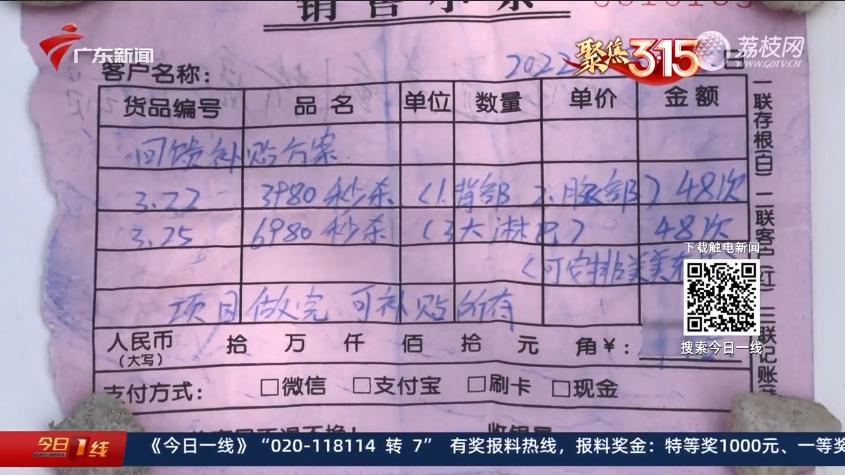 销售小票
广东新闻
聚焦3·15
荔枝网
WWW.GDTV.CN
客户名称：
2022
货品编号 品名 单位 数量 单价 金额
回馈补贴方案
3.22 3980秒杀 (1.背部 2.腹部) 48次
3.25 6980秒杀 (3大淋巴) 48次
(可安排美美
项目做完 可补贴所有
人民币
(大写)
拾 万 仟 佰 拾 元 角 ¥：
支付方式： □微信 □支付宝 □刷卡 □现金
一联存根(白) 二联客户(红) 三联记账
下载触电新闻
搜索今日一线
今日一线
《今日一线》“020-118114 转 7” 有奖报料热线，报料奖金：特等奖1000元、一等奖